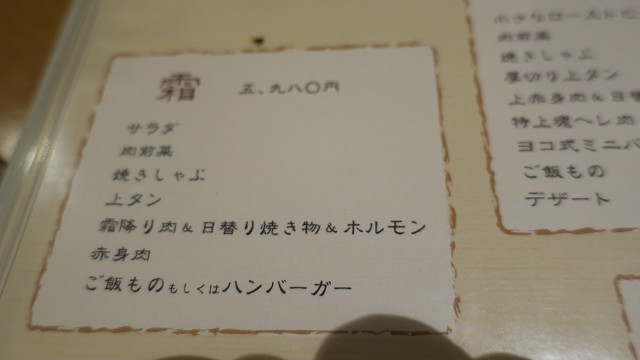 霜 五、九八〇円
サラダ
肉前菜
焼きしゃぶ
上タン
霜降り肉&日替り焼き物&ホルモン
赤身肉
ご飯ものもしくはハンバーガー
肉前菜
焼きしゃぶ
厚切り上タン
上赤身肉&日替
特上塊ヘレ肉
ヨコ式ミニバ
ご飯もの
デザート